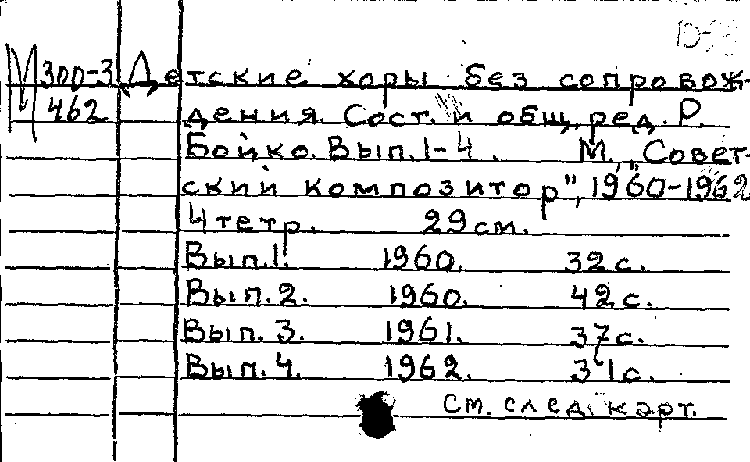 М 300-3 Детские хоры без сопровож-
462 дения. Сост. и общ. ред. Р.
Бойко. Вып. 1-4. М., „Совет-
ский композитор", 1960-1962
4 тетр. 29 см.
Вып. 1. 1960. 32 с.
Вып. 2. 1960. 42 с.
Вып. 3. 1961. 37 с.
Вып. 4. 1962. 31 с.
См. след. карт.